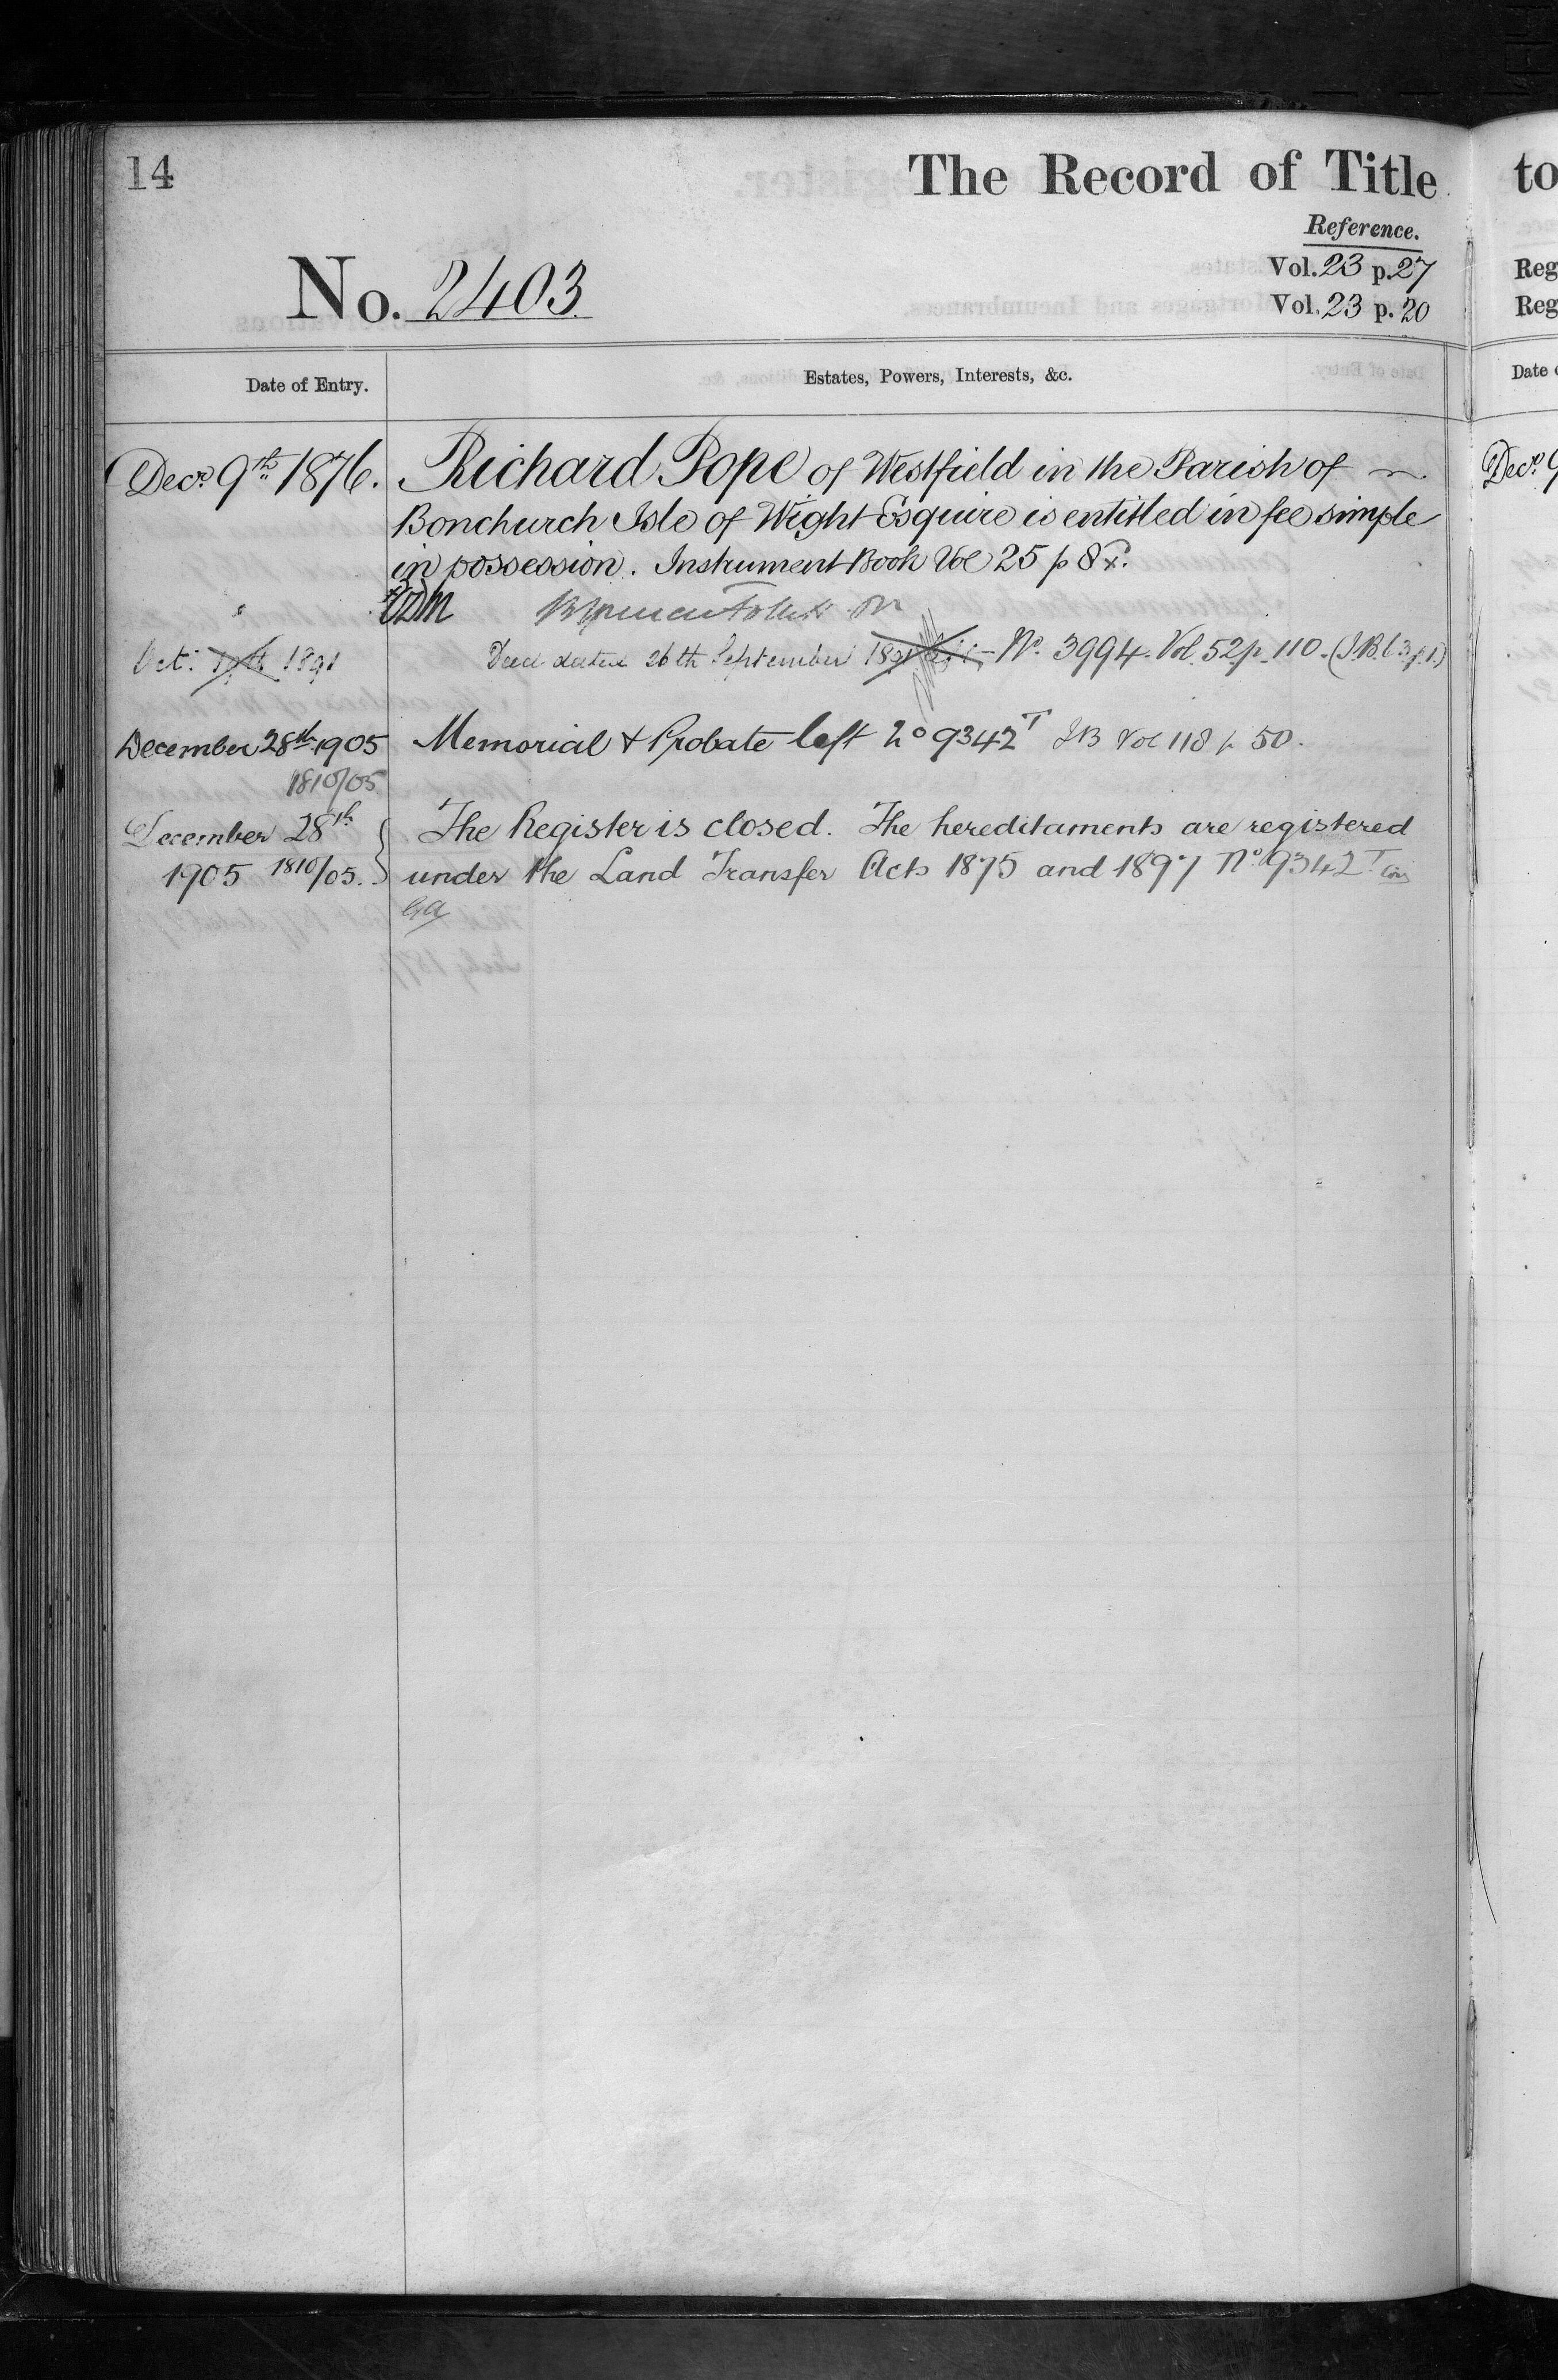 14
The Record of Title
to
Reference.
Vol. 23 p. 27
Reg
No. 2403
Vol. 23 p. 20
Reg
Date of Entry.
Estates, Powers, Interests, &c.
Date
Decr. 9th 1876.
Richard Pope of Westfield in the Parish of
Decr. 9
Bonchurch Isle of Wight Esquire is entitled in fee simple
in possession. Instrument Book Vol 25 p 8
Oct: 1891
Deed dated 26th September 1891 No. 3994. Vol. 52 p. 110. (I.B. 63 p. 1)
December 28th 1905
Memorial & Probate left No 9342T IB Vol 118 p 50.
1810/05
December 28th
The Register is closed. The hereditaments are registered
1905 1810/05.
under the Land Transfer Acts 1875 and 1897 No. 9342T